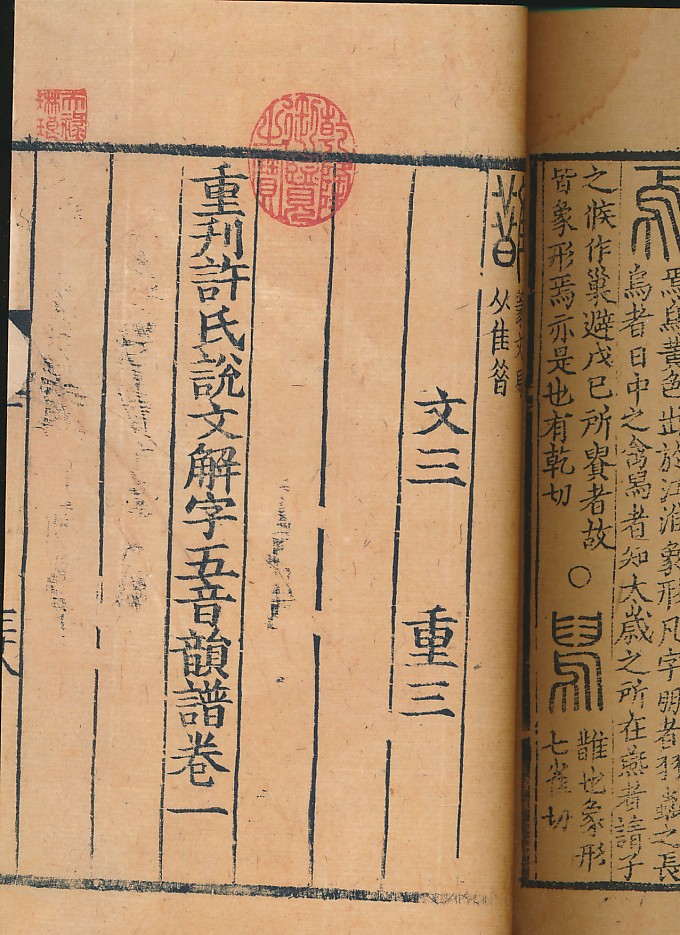 焉鳥黃色出於江淮象形凡字朋者羽蟲之長
烏者日中之禽舄者知太歲之所在燕者請子
之候作巢避戊巳所貴者故
皆象形焉亦是也有乾切
○
舄
䧿也象形
七雀切
䧿
从隹昔
文三 重三
重刊許氏說文解字五音韻譜卷一
乾隆御覽之寶
天祿琳琅